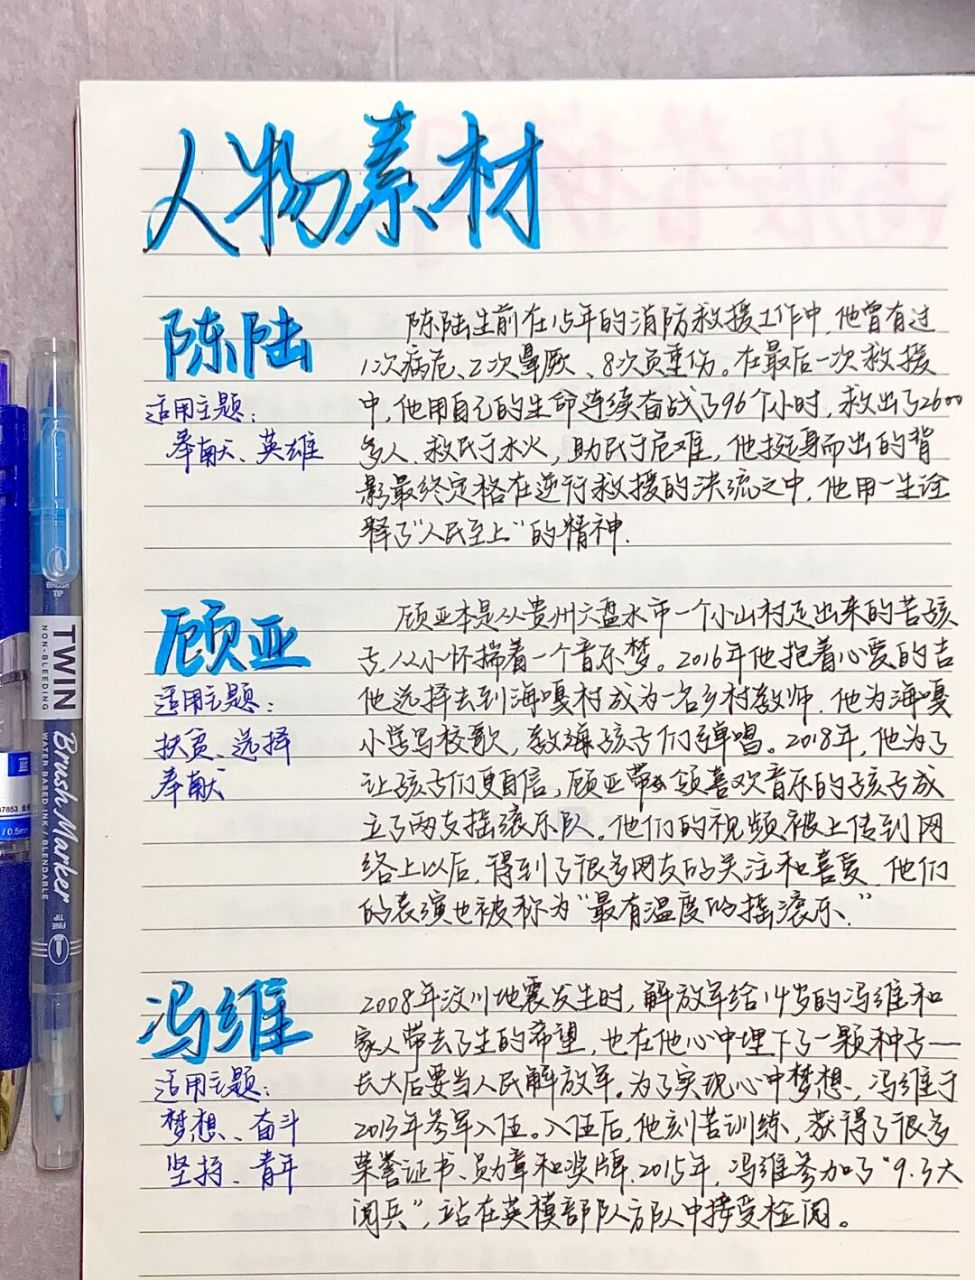 人物素材
陈陆
适用主题：
奉献、英雄
陈陆生前在15年的消防救援工作中,他曾有过
1次病危、2次晕厥、8次负重伤。在最后一次救援
中,他用自己的生命连续奋战了96个小时,救出了2600
多人,救民于水火,助民于危难,他挺身而出的背
影最终定格在逆行救援的洪流之中,他用一生诠
释了“人民至上”的精神.
顾亚
适用主题：
扶贫、选择
奉献
顾亚本是从贵州六盘水市一个小山村走出来的苦孩
子,从小怀揣着一个音乐梦。2016年他抱着心爱的吉
他选择去到海嘎村成为一名乡村教师,他为海嘎
小学写校歌,教海孩子们弹唱。2018年,他为了
让孩子们更自信,顾亚带领喜欢音乐的孩子成
立了两支摇滚乐队。他们的视频被上传到网
络上以后,得到了很多网友的关注和喜爱,他们
的表演也被称为“最有温度的摇滚乐.”
冯维
适用主题：
梦想、奋斗
坚持、青年
2008年汶川地震发生时,解放军给14岁的冯维和
家人带去了生的希望,也在他心中埋下了一颗种子——
长大后要当人民解放军。为了实现心中梦想,冯维于
2013年参军入伍。入伍后,他刻苦训练,获得了很多
荣誉证书、勋章和奖牌,2015年,冯维参加了“9.3大
阅兵”,站在英模部队方队中接受检阅。
BRUSH
TIP
TWIN
NON-BLEEDING
Brush Marker
WATER BASED INK / BLENDABLE
FINE
TIP
蓝
67853
/0.5mm